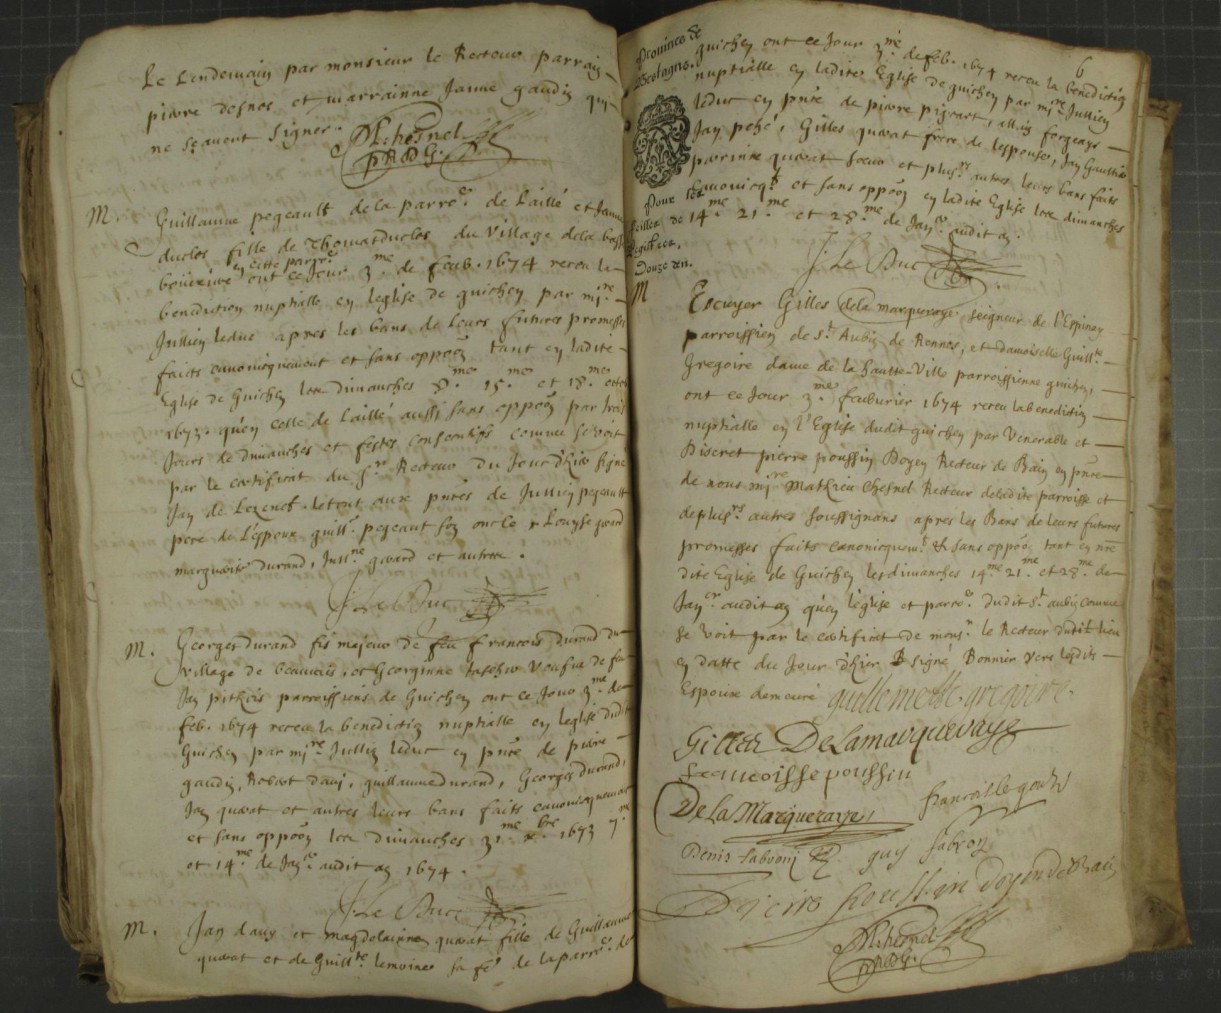 Le Lendemain par monsieur le Recteur parrain
pierre desnos et marrainne Janne gaudin qui
ne sçavent signer.
M. Chesnel
M. Guillaume pegeault de la parroe. de Laillé et Janne
duclos fille de Thomas duclos du Village de la basse
en cette parroe.
ont ce Jour 3.me de feub. 1674 receu la
benediction nuptialle en leglise de guichen par mire.
Jullien leduc apres les bans de leurs futures promesses
faits canonicquement et sans oppoon tant en ladite
Eglise de Guichen les dimanches 8.me 15.me et 18.me
1673. qu'en celle de Laillé aussi sans oppoon par trois
Jours de dimanches et festes consecutifs comme se voit
par le certificat du sr. Recteur du Jour d'hier signé
Jan de Lezenet. le tout aux pnces de Jullien pegeault
pere de l'epoux guill. pegeaut son oncle Louyse gerard
margueritte durand, Jullne gerard et autres.
J: Le Duc
M. Georges durand fis majeur de feu francois durand du
village de beauvais, et Georginne tasehir veufue de feu
Jan pithois parroissiens de Guichen ont ce Jour 3.me de
feb. 1674 receu la benediction nuptialle en leglise dudit
Guichen par mire. Jullien leduc en pnce de pierre
gaudin, Robert davy, guillaume durand, Georges durand,
Jan querat et autres leurs bans faits canonicquement
et sans oppoon les dimanches 31.me xbre. 1673 7.me
et 14.me de Janer. audit an 1674.
J: Le Duc
M. Jan davy et magdelainne querat fille de Guillaume
querat et de Guillte. lemoine sa fe. de la parroe. de
6
Province de
Bretagne.
Pour les
feilles de
Registres,
Douze den.
guichen ont ce Jour 3.me de feb. 1674 receu la benediction
nuptialle en ladite Eglise de guichen par mire Jullien
leduc en pnce de pierre pigeart, allain forgeays
Jan pehé, Gilles querat frere de lespouse, Jan Gaultier
perrinne querat sœur et plusrs. autres leurs bans faits
canonicqt. et sans oppoon en ladite Eglise les dimanches
14.me 21.me et 28.me de Janer. audit an.
J: Le Duc
M Escuyer Gilles de la marqueraye seigneur de l'Espinay
parroissien de st. Aubin de Rennes, et damoiselle Guillte.
Gregoire dame de la haulte-Ville parroissienne guichen,
ont ce Jour 3.me feubvrier 1674 receu la benediction
nuptialle en l'Eglise dudit guichen par Venerable et
Discret pierre poussin Doyen Recteur de Bain en pnce
de nous mire Mathieu Chesnel Recteur de ladite parroisse et
de plusrs. autres soussignans apres les Bans de leurs futures
promesses faits canonicquemt. & sans oppoon tant en nre
dite Eglise de Guichen les dimanches 14.me 21.me et 28.me de
Janer. audit an qu'en l'eglise et parroe. dudit st. aubin comme
se voit par le certificat de monsr. le Recteur dudit lieu
en datte du Jour d'hier signé Bonnier Vers lesdits
Espoux demeuré guillemette gregoire.
Gilles De Lamarqueraye
francoisse poussin
De La Marqueraye
Denis
guy
pierre Poussin doyen de Bain
M. Chesnel